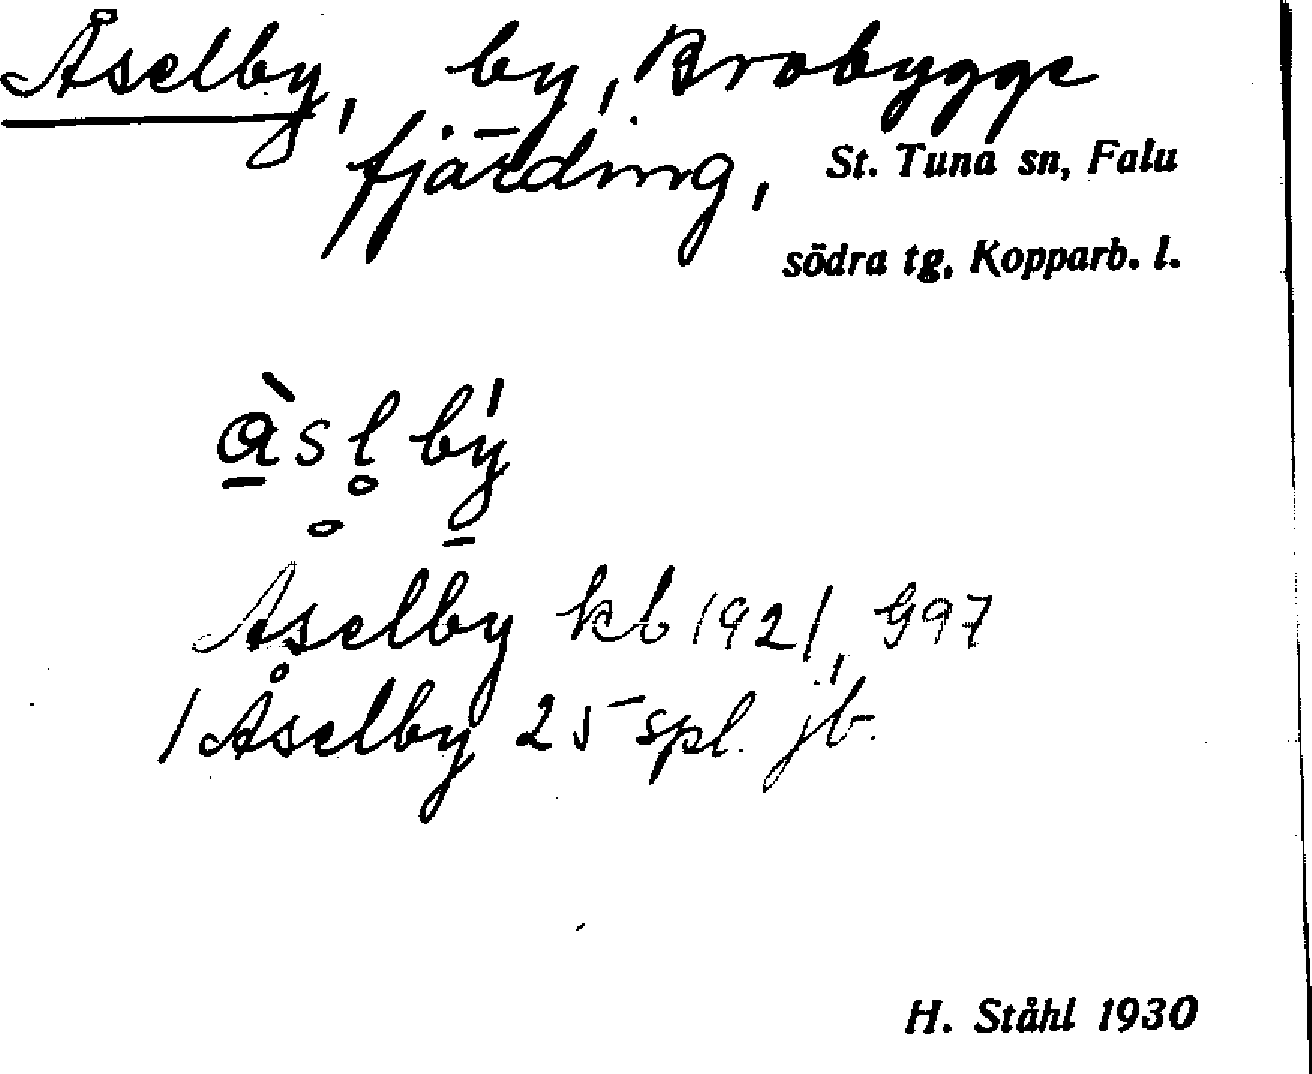 Åselby, by, Brobygge
fjärding, St. Tuna sn, Falu
södra tg, Kopparb. l.
Åselby kb 1921, G97
1 Åselby 25 spl. jb.
H. Ståhl 1930